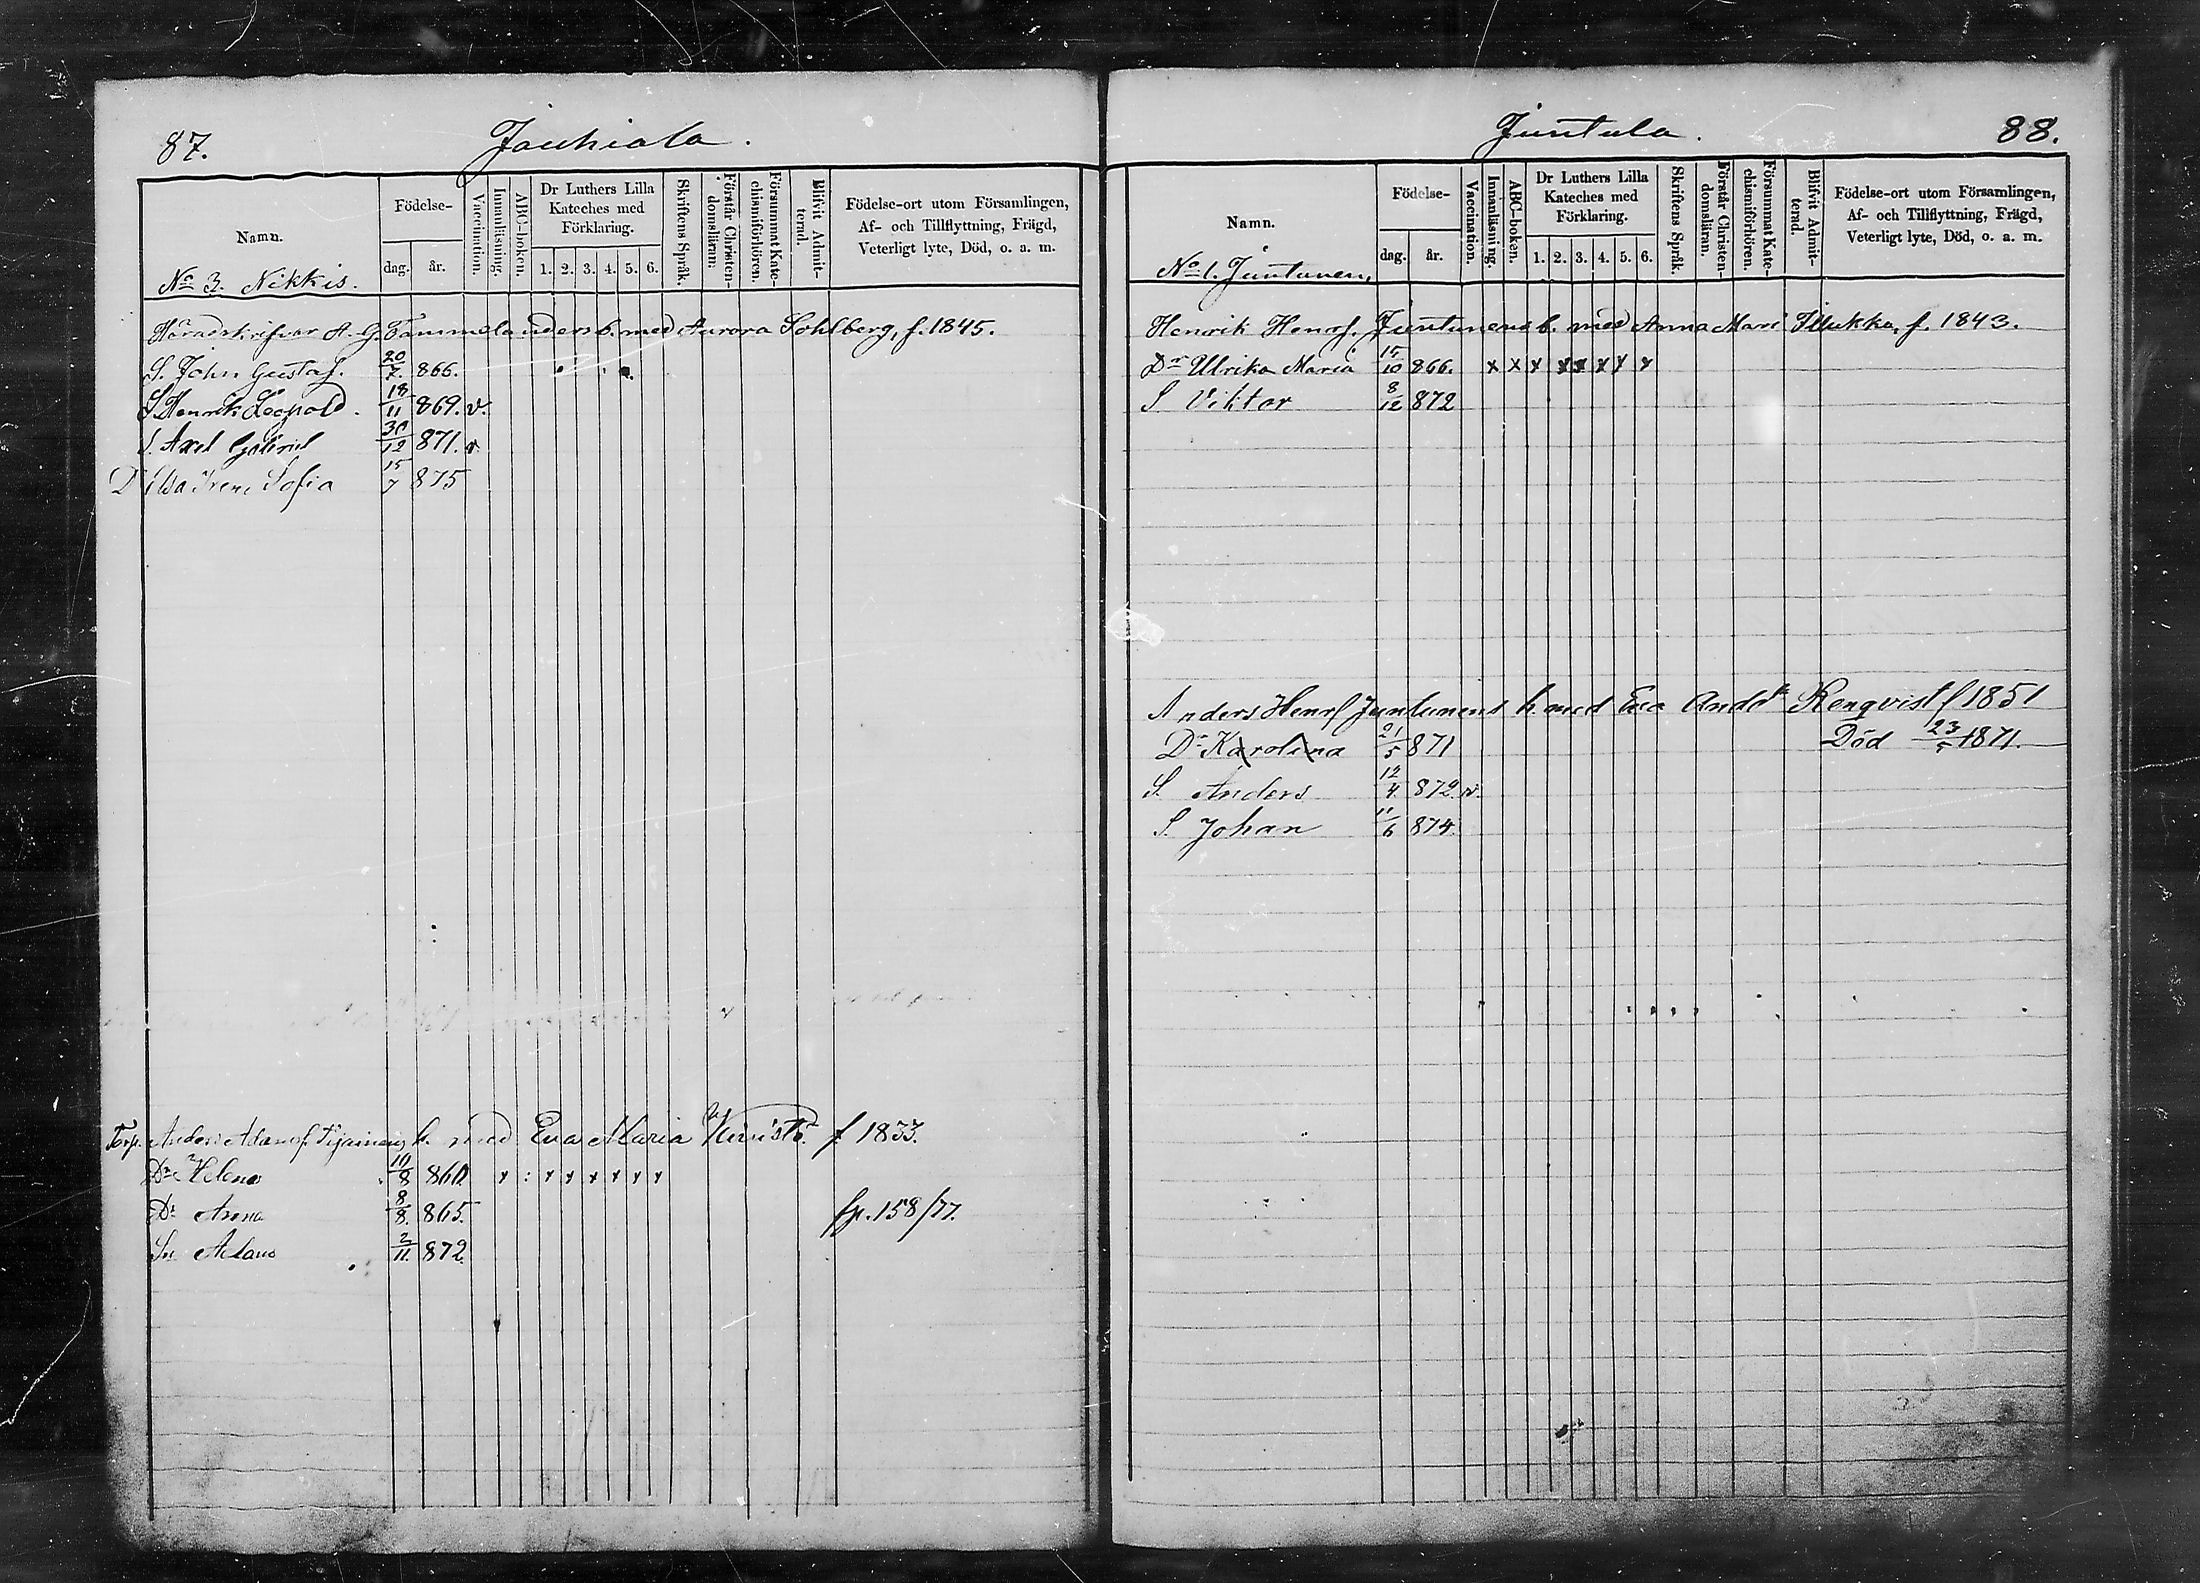 87.
Jauhiala.
Namn.
Födelse-
dag.
år.
Vaccination.
Innanläsning.
ABC-boken.
Dr Luthers Lilla Kateches med Förklaring.
1. 2. 3. 4. 5. 6.
Skriftens Språk.
Förstår Christendomsläran.
Försummat Katechismiförhören.
Blifvit Admitterad.
Födelse-ort utom Församlingen,
Af- och Tillflyttning, Frägd,
Veterligt lyte, Död, o. a. m.
No 3. Nikkis.
Häradskrifvar A. G. Tammelanders b. med Aurora Sohlberg, f. 1845.
S. John Gustaf. 20/7. 866.
S. Henrik Leopold. 18/11 869. v.
S. Axel Gabriel 30/12 871. v
D Elsa Irene Sofia 15/7 875
Torp. Anders Adamsf. b. med Eva Maria f 1833.
Dr Helena 10/8 860 x : x x x x x x
Dr Anna 8/8. 865. fp. 158/77.
Sn Adam 2/11. 872.
88.
Juntula.
Namn.
Födelse-
dag.
år.
Vaccination.
Innanläsning.
ABC-boken.
Dr Luthers Lilla Kateches med Förklaring.
1. 2. 3. 4. 5. 6.
Skriftens Språk.
Förstår Christendomsläran.
Försummat Katechismiförhören.
Blifvit Admitterad.
Födelse-ort utom Församlingen,
Af- och Tillflyttning, Frägd,
Veterligt lyte, Död, o. a. m.
No 1. Juntunen.
Henrik Henrf. Juntunens b. med Anna Mari Illukka, f. 1843.
Dr Ulrika Maria 15/10 866. x x x x x x x x
S Viktor 8/12 872
Anders Henrf Juntunens b. med Eva Andd Renqvist f 1851
Dr Karolina 21/5 871 Död 23/5 1871.
S. Anders 12/4 872. v.
S. Johan 11/6 874.